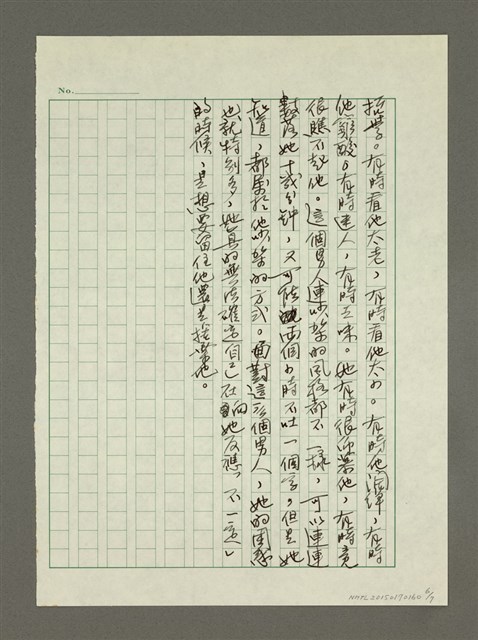 No.
掂掇。有時看他太老，有時看他太小。有時他深諱，有時
他寒酸。有時迷人，有時乏味。她有時很仰慕他，有時竟
很瞧不起他。這個男人連吵架的風格都不一樣，可以連連
數落她十或分鐘，又可能兩個小時不吐一個字，但是她
知道，都屬於他吵架的方式。面對這麼個男人，她的困惑
也就特別多，她真的無法確定自己在响她反應「不一定」
的時候，是想要留住他還是
他。
NMTL20150170164 6/7